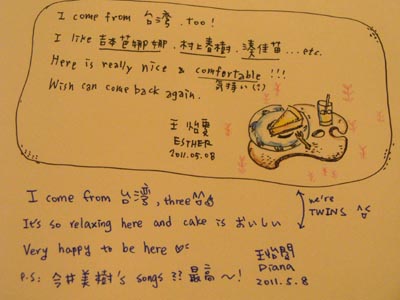 I come from 台湾, too!
I like 吉本芭娜娜, 村上春樹, 湊佳苗...etc.
Here is really nice & comfortable!!!
気持い(?)
Wish can come back again.
王怡
ESTHER
2011.05.08
I come from 台湾, three
It's so relaxing here and cake is おいしい
Very happy to be here
P.S: 今井美樹's songs ?? 最高~!
we're
TWINS ^^
王怡
Diana
2011.5.8